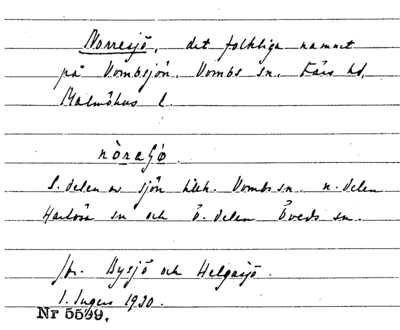 Norresjö, det folkliga namnet
på Vombsjön, Vombs sn. Färs hd,
Malmöhus l.
nòraʃø.
S. delen av sjön tillh. Vombs sn. n. delen
Harlösa sn och Ö. delen Öveds sn.
Jfr. Bysjö och Helgasjö.
1930.
Nr 5599.